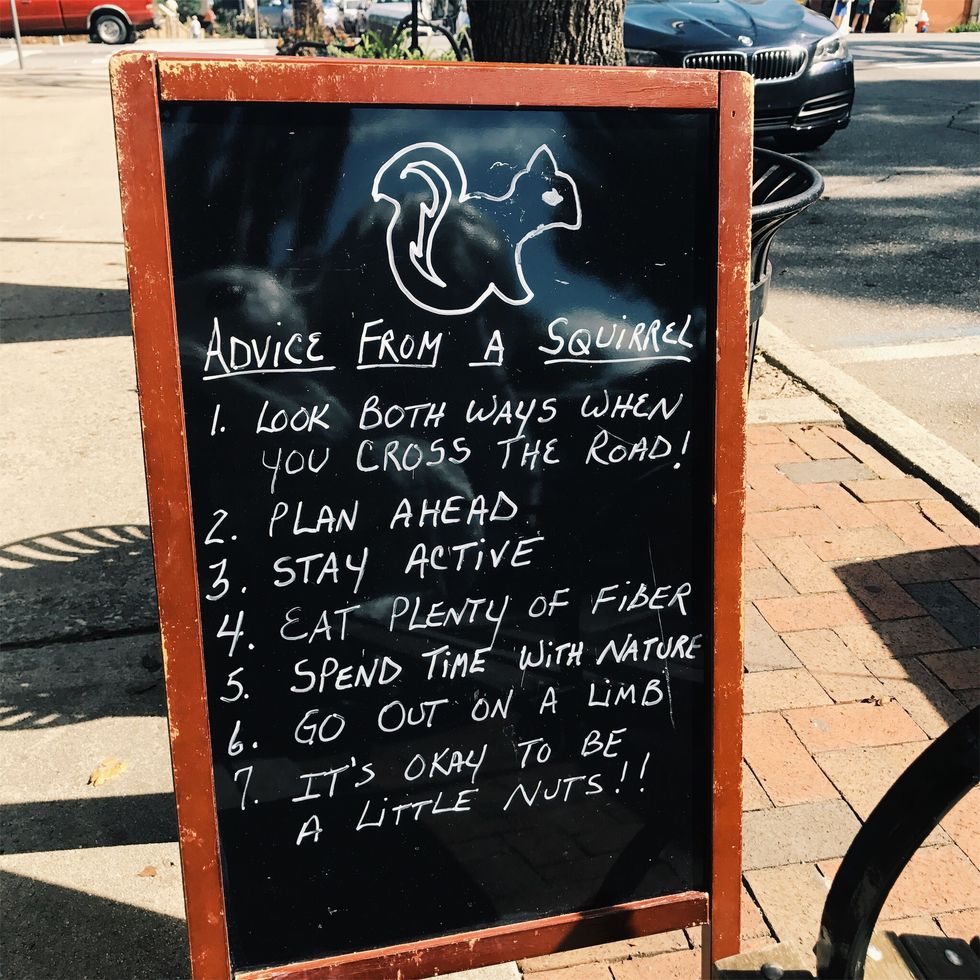 ADVICE FROM A SQUIRREL
1. LOOK BOTH WAYS WHEN
YOU CROSS THE ROAD!
2. PLAN AHEAD
3. STAY ACTIVE
4. EAT PLENTY OF FIBER
5. SPEND TIME WITH NATURE
6. GO OUT ON A LIMB
7. IT'S OKAY TO BE
A LITTLE NUTS!!